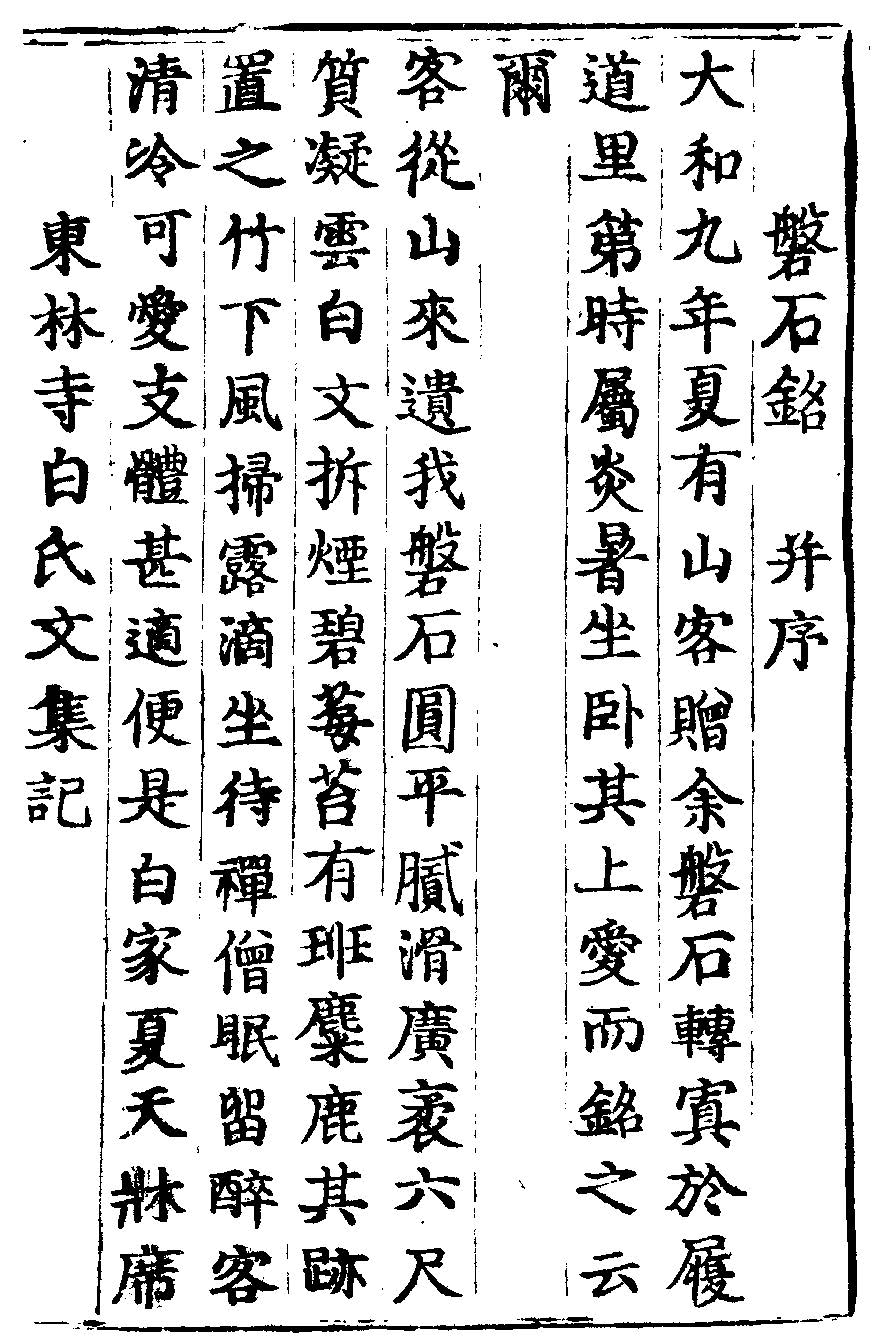 磐石銘 并序
大和九年夏有山客贈余磐石轉寘於履
道里第時屬炎暑坐卧其上愛而銘之云
爾
客從山來遺我磐石圓平膩滑廣袤六尺
質凝雲白文拆煙碧莓苔有班麋鹿其跡
置之竹下風掃露滴坐待禪僧眠留醉客
清泠可愛支體甚適便是白家夏天牀席
東林寺白氏文集記